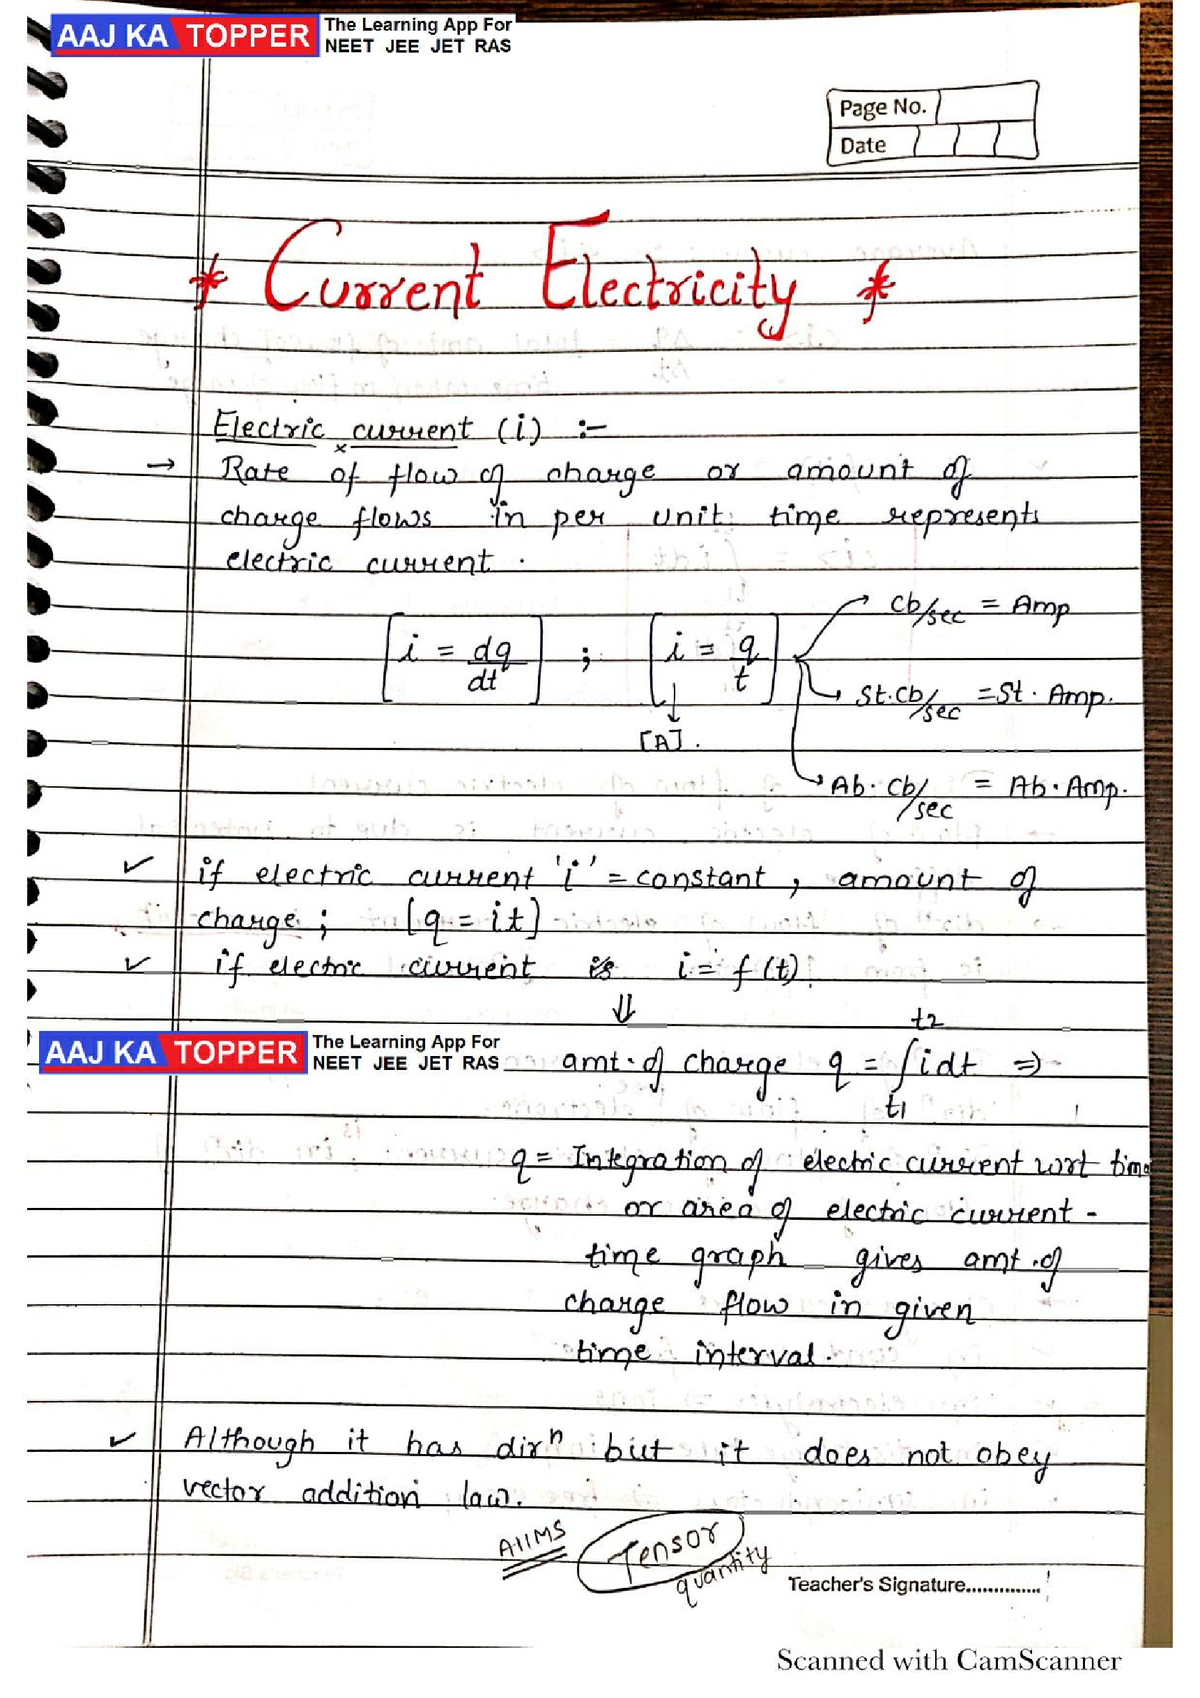 AAJ KA TOPPER The Learning App For
NEET JEE JET RAS
Page No.
Date
* Current Electricity *
Electric current (i) :-
→ Rate of flow of charge or amount of
charge flows in per unit time represents
electric current.
[i = dq/dt] ; [i = q/t]
Cb/sec = Amp
St.Cb/sec = St. Amp.
[A].
Ab. Cb/sec = Ab. Amp.
✓ if electric current 'i' = constant, amount of
charge ; [q = it]
✓ if electric current is i = f(t)
⇓
AAJ KA TOPPER The Learning App For
NEET JEE JET RAS
amt. of charge q = ∫ t1 t2 i dt ⇒
q = Integration of electric current wrt time
or area of electric current -
time graph gives amt. of
charge flow in given
time interval.
✓ Although it has dirⁿ but it does not obey
vector addition law.
AIIMS Tensor
quantity
Teacher's Signature..............
Scanned with CamScanner